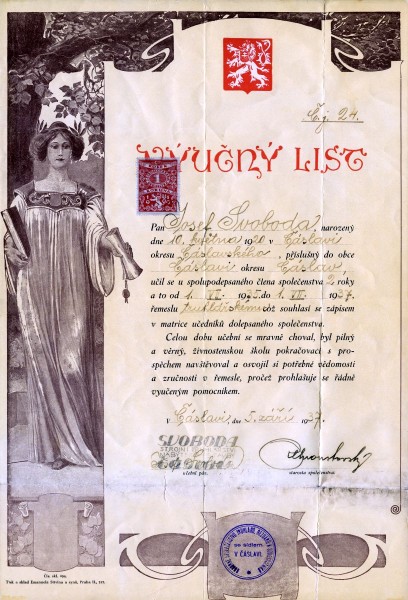 Č.j. 24.
VÝUČNÝ LIST
1
Pan Josef Svoboda, narozený
dne 10. května 1920 v Čáslavi
okresu Čáslavského, příslušný do obce
Čáslavi okresu Čáslav,
učil se u spolupodepsaného člena společenstva 2 roky
a to od 1. VII. 1935 do 1. VII. 1937.
řemeslu truhlářskému což souhlasí se zápisem
v matrice učedníků dolepsaného společenstva.
Celou dobu učební se mravně choval, byl pilný
a věrný, živnostenskou školu pokračovací s pro-
spěchem navštěvoval a osvojil si potřebné vědomosti
a zručnosti v řemesle, pročež prohlašuje se řádně
vyučeným pomocníkem.
v Čáslavi, dne 5. září 1937.
SVOBODA
STROJNÍ
učební pán.
starosta společenstva
se sídlem
V ČÁSLAVI.
Čís. skl. 10a.
Tisk a sklad Emanuela Stivína a synů, Praha II., 156.